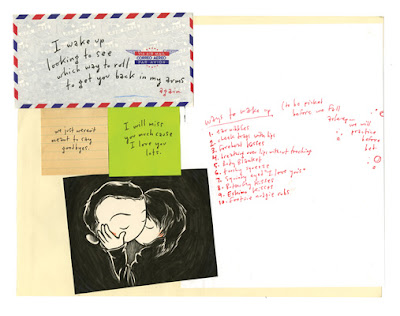 I wake up
looking to see
which way to roll
to get you back in my arms
again.
VIA AIR MAIL
CORREO AEREO
PAR AVION
we just weren't
meant to say
goodbyes.
I will miss
you much cause
I love you
lots.
Ways to wake up (to be picked
before we fall
asleep...
we will
practice
before
bed.
1. ear nibbles
2. with lips
3. kisses
4. breathing over lips without touching
5. baby blanket
6. squeeze
7. eyed "I love you"
8. Butterfly kisses
9. Eskimo kisses
10. rubs